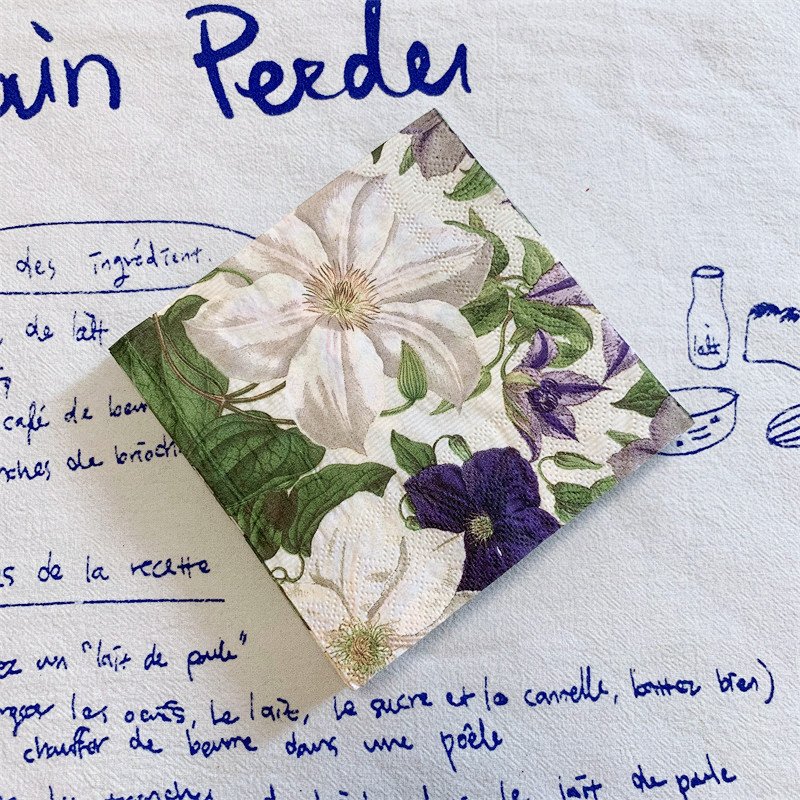 ain Perdu
des ingrédient.
de lait
café de beur
nches de brioch
lait
s de la recette
ez un "lait de poule"
les oeufs, le lait, le sucre et la cannelle, battez bien)
chauffer de beurre dans une poêle
tranches lait de poule